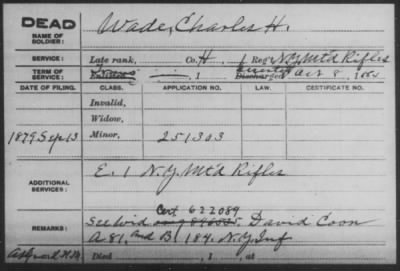 DEAD
NAME OF SOLDIER: Wade, Charles H.
SERVICE: Late rank, Co. H. 1 Reg't N.Y. Mt'd Rifles
TERM OF SERVICE: , 1 Discharged Oct 8, 1864
DATE OF FILING. CLASS. APPLICATION NO. LAW. CERTIFICATE NO.
Invalid,
Widow,
1879 Sep 13 Minor, 251303
ADDITIONAL SERVICES: E. 1 N.Y. Mt'd Rifles
Cert 622089
REMARKS: See Wid David Coon
A 81, and B. 184. N.Y. Inf
Died , 1 , at